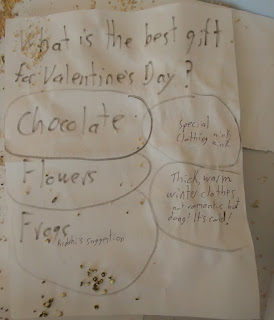 What is the best gift
for Valentine's Day?
Chocolate
Special
clothing wink
wink
Flowers
Thick, warm
winter clothes
not romantic but
dang! It's cold!
Frogs
Kiddo's suggestion